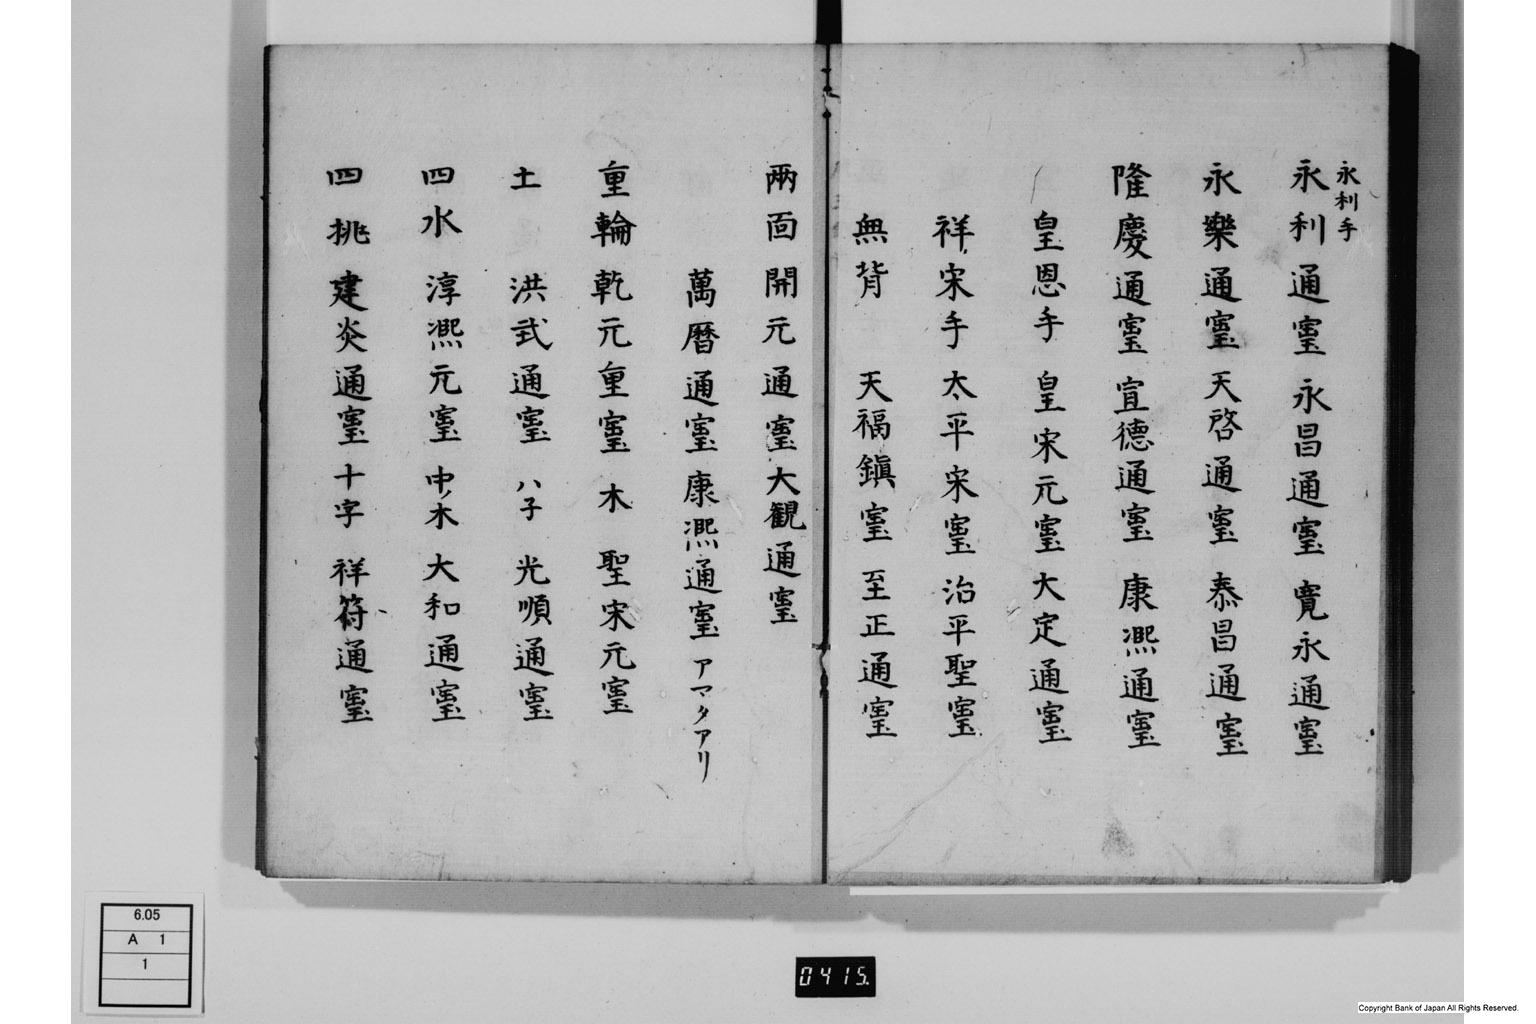 永利手
永利通寳 永昌通寳 寛永通寳
永樂通寳 天啓通寳 泰昌通寳
隆慶通寳 宣德通寳 康熈通寳
皇恩手 皇宋元寳 大定通寳
祥宋手 太平宋寳 治平聖寳
無背 天福鎭寳 至正通寳
兩面 開元通寳 大観通寳
萬暦通寳 康熈通寳 アマタアリ
重輪 乾元重寳 木 聖宋元寳
土 洪武通寳 ハ子 光順通寳
四水 淳熈元寳 中ノ木 大和通寳
四挑 建炎通寳 十字 祥符通寳
6.05
A 1
1
0415.
Copyright Bank of Japan All Rights Reserved.